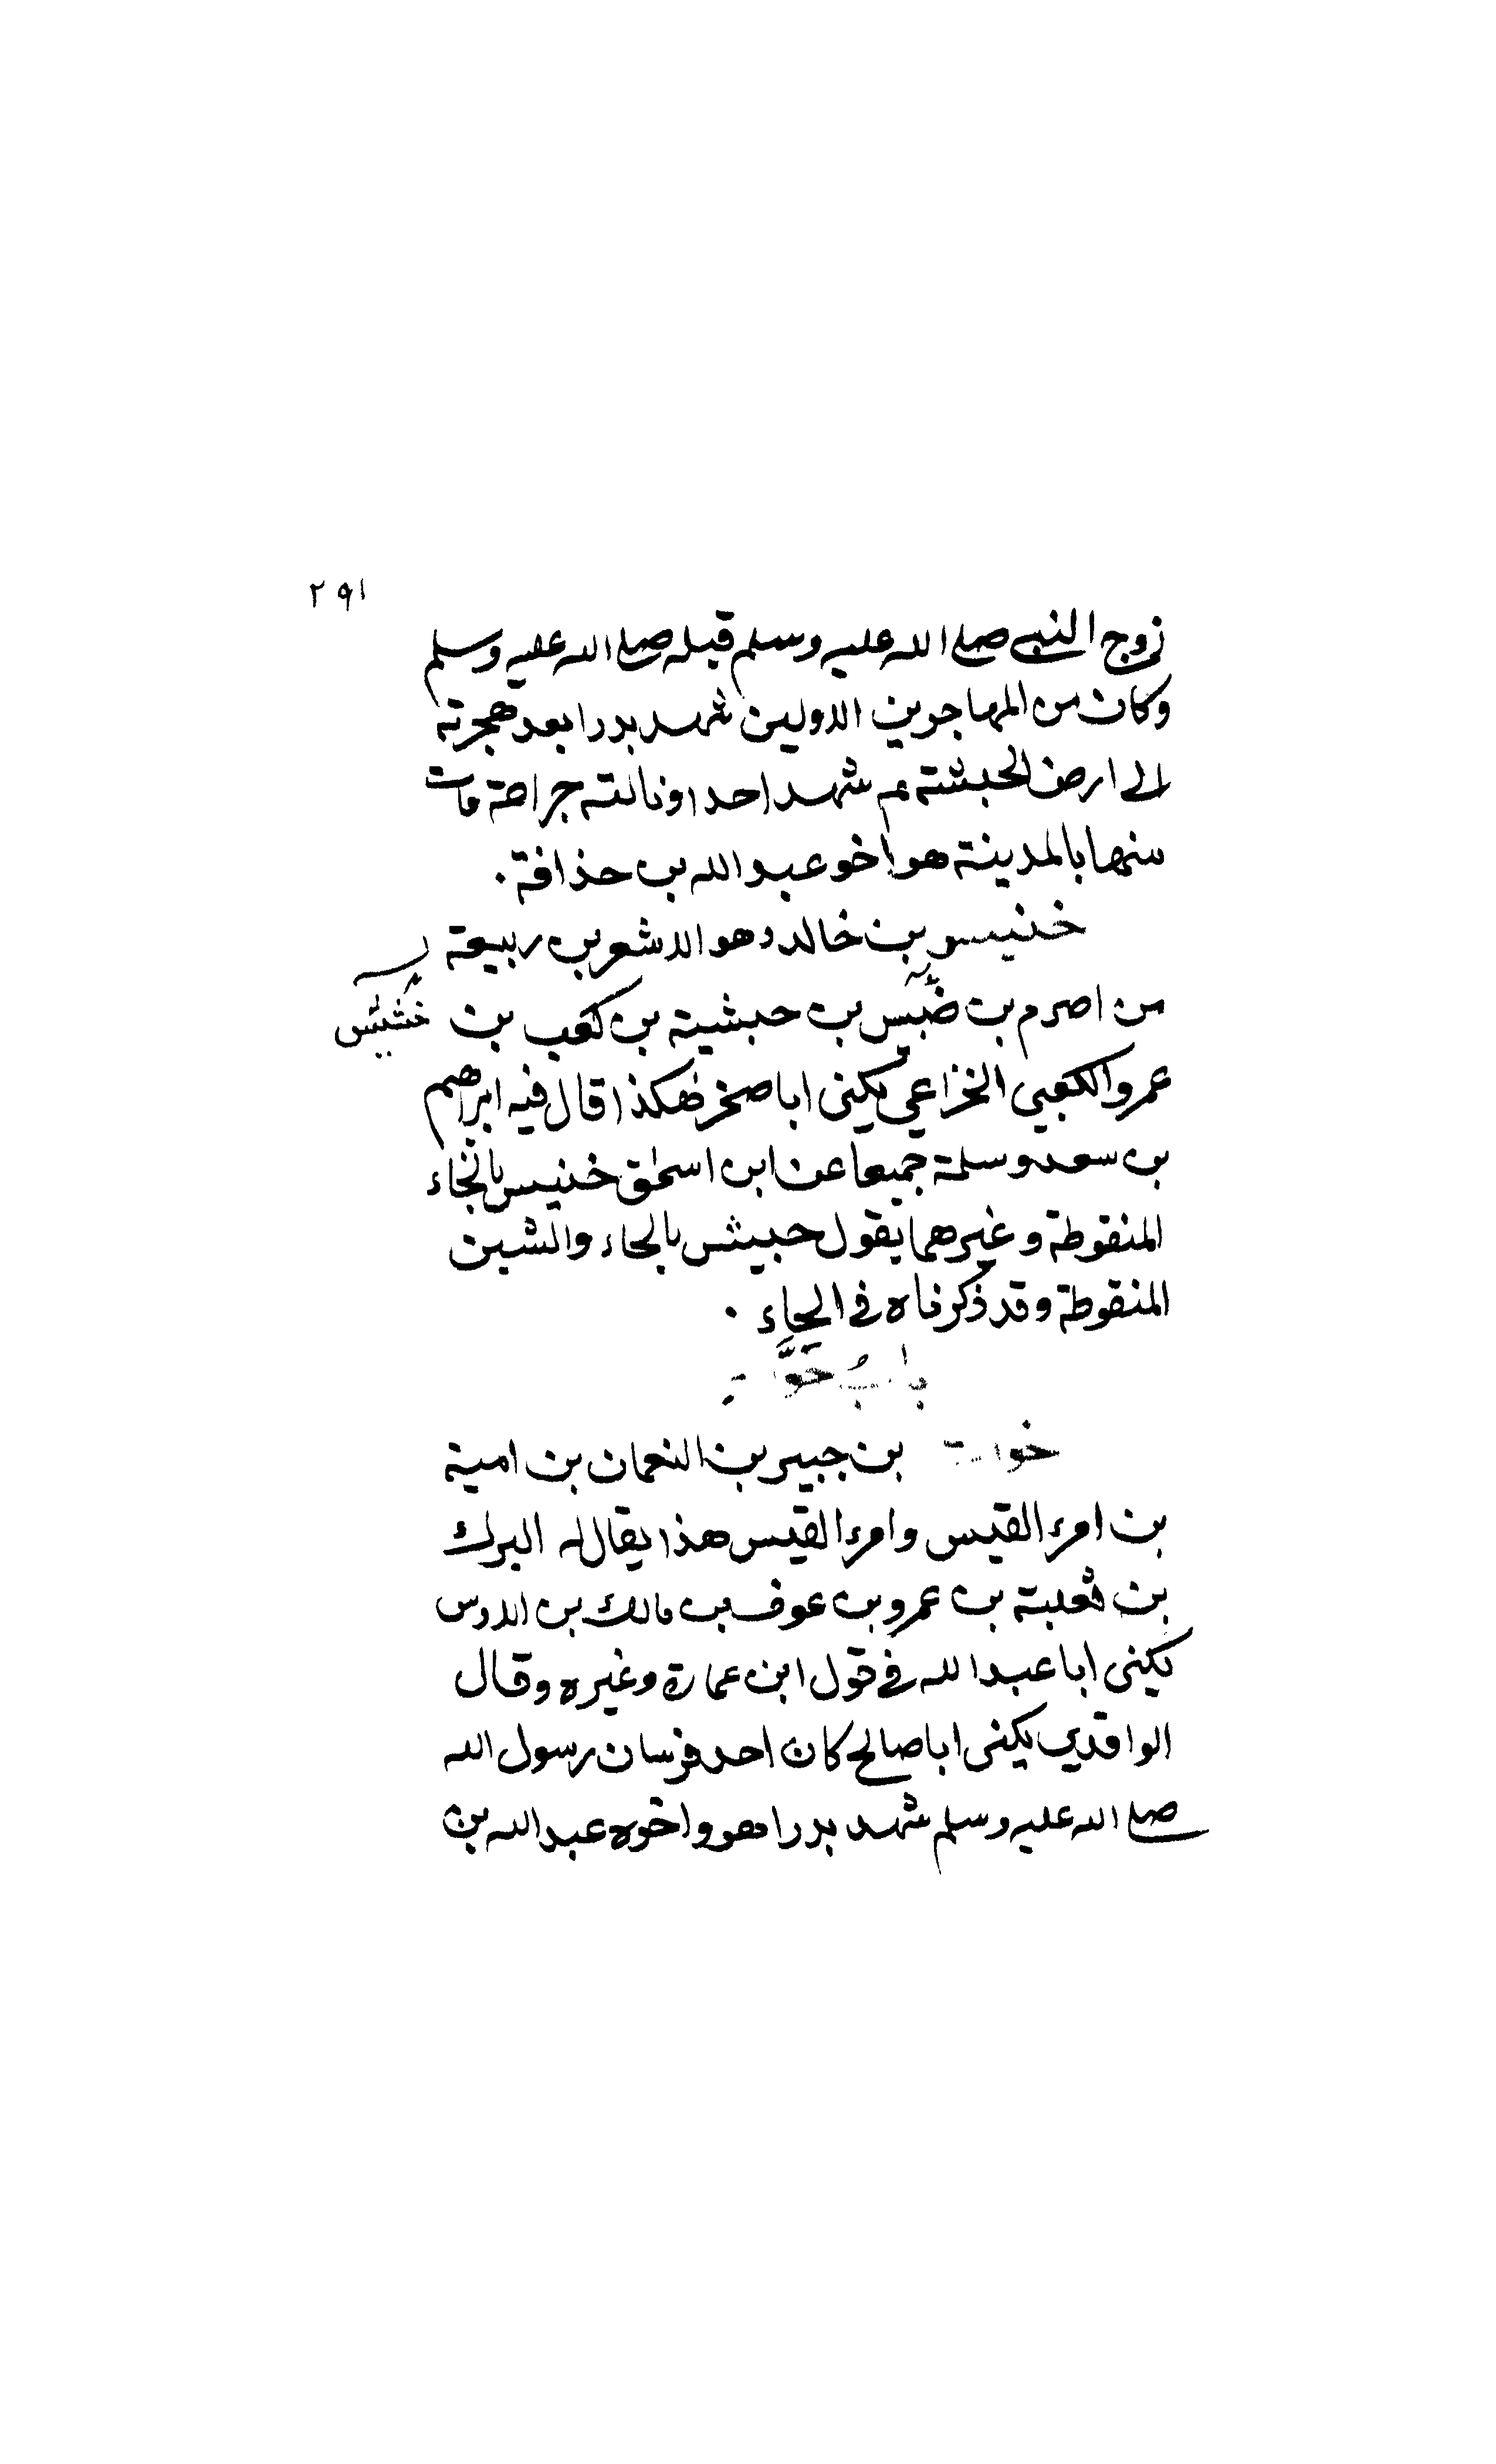 ٢٩١
زوج النبي صلى الله عليه وسلم قبله صلى الله عليه وسلم
وكان من المهاجرين الاولين شهد بدرا بعد هجرته
الى ارض الحبشة ثم شهد احدا ونالته جراحة مات
منها بالمدينة هو اخو عبد الله بن حذافة .
خنيس بن خالد وهو الاشعر بن ربيعة
بن اصرم بن ضبيس بن حبشية بن كعب بن
عمرو الكعبي الخزاعي يكنى ابا صخر هكذا قال فيه ابراهيم
بن سعد وسلمة جميعا عن ابن اسحٰق خنيس بالخاء
المنقوطة وغيرهما يقول حبيش بالحاء والشين
المنقوطة وقد ذكرناه في الحاء .
بابُ خوّات
خوات بن جبير بن النعمان بن امية
بن امرء القيس وامرء القيس هذا يقال له البرك
بن ثعلبة بن عمرو بن عوف بن مالك بن الاوس
يكنى ابا عبد الله في قول ابن عمارة وغيره وقال
الواقدي يكنى ابا صالح كان احد فرسان رسول الله
صلى الله عليه وسلم شهد بدرا هو واخوه عبد الله بن